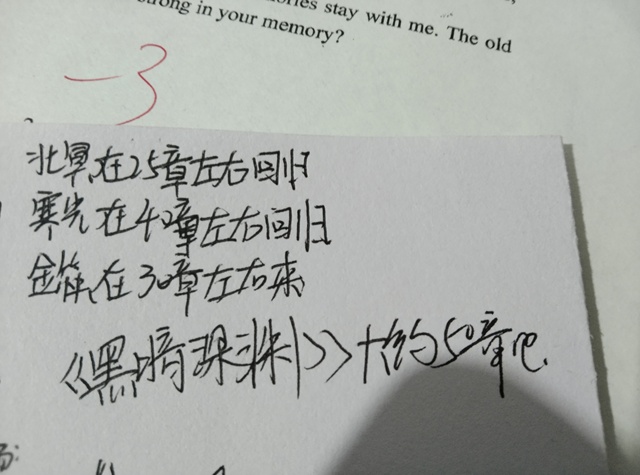 ories stay with me. The old
ong in your memory?
-3
北寒在25章左右回归
寒光在40章左右回归
金笙在30章左右来
《黑暗深渊》十约50章吧.